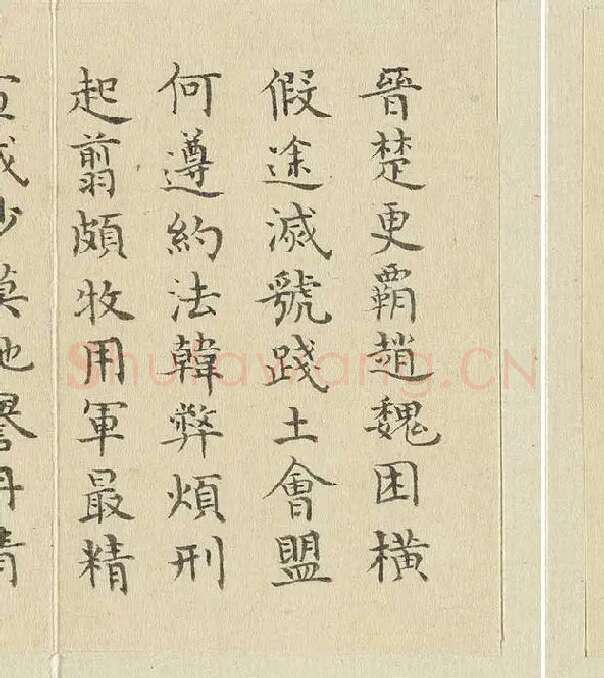 晉楚更霸趙魏困橫
假途滅虢踐土會盟
何遵約法韓弊煩刑
起翦頗牧用軍最精
宣威沙漠馳譽丹青